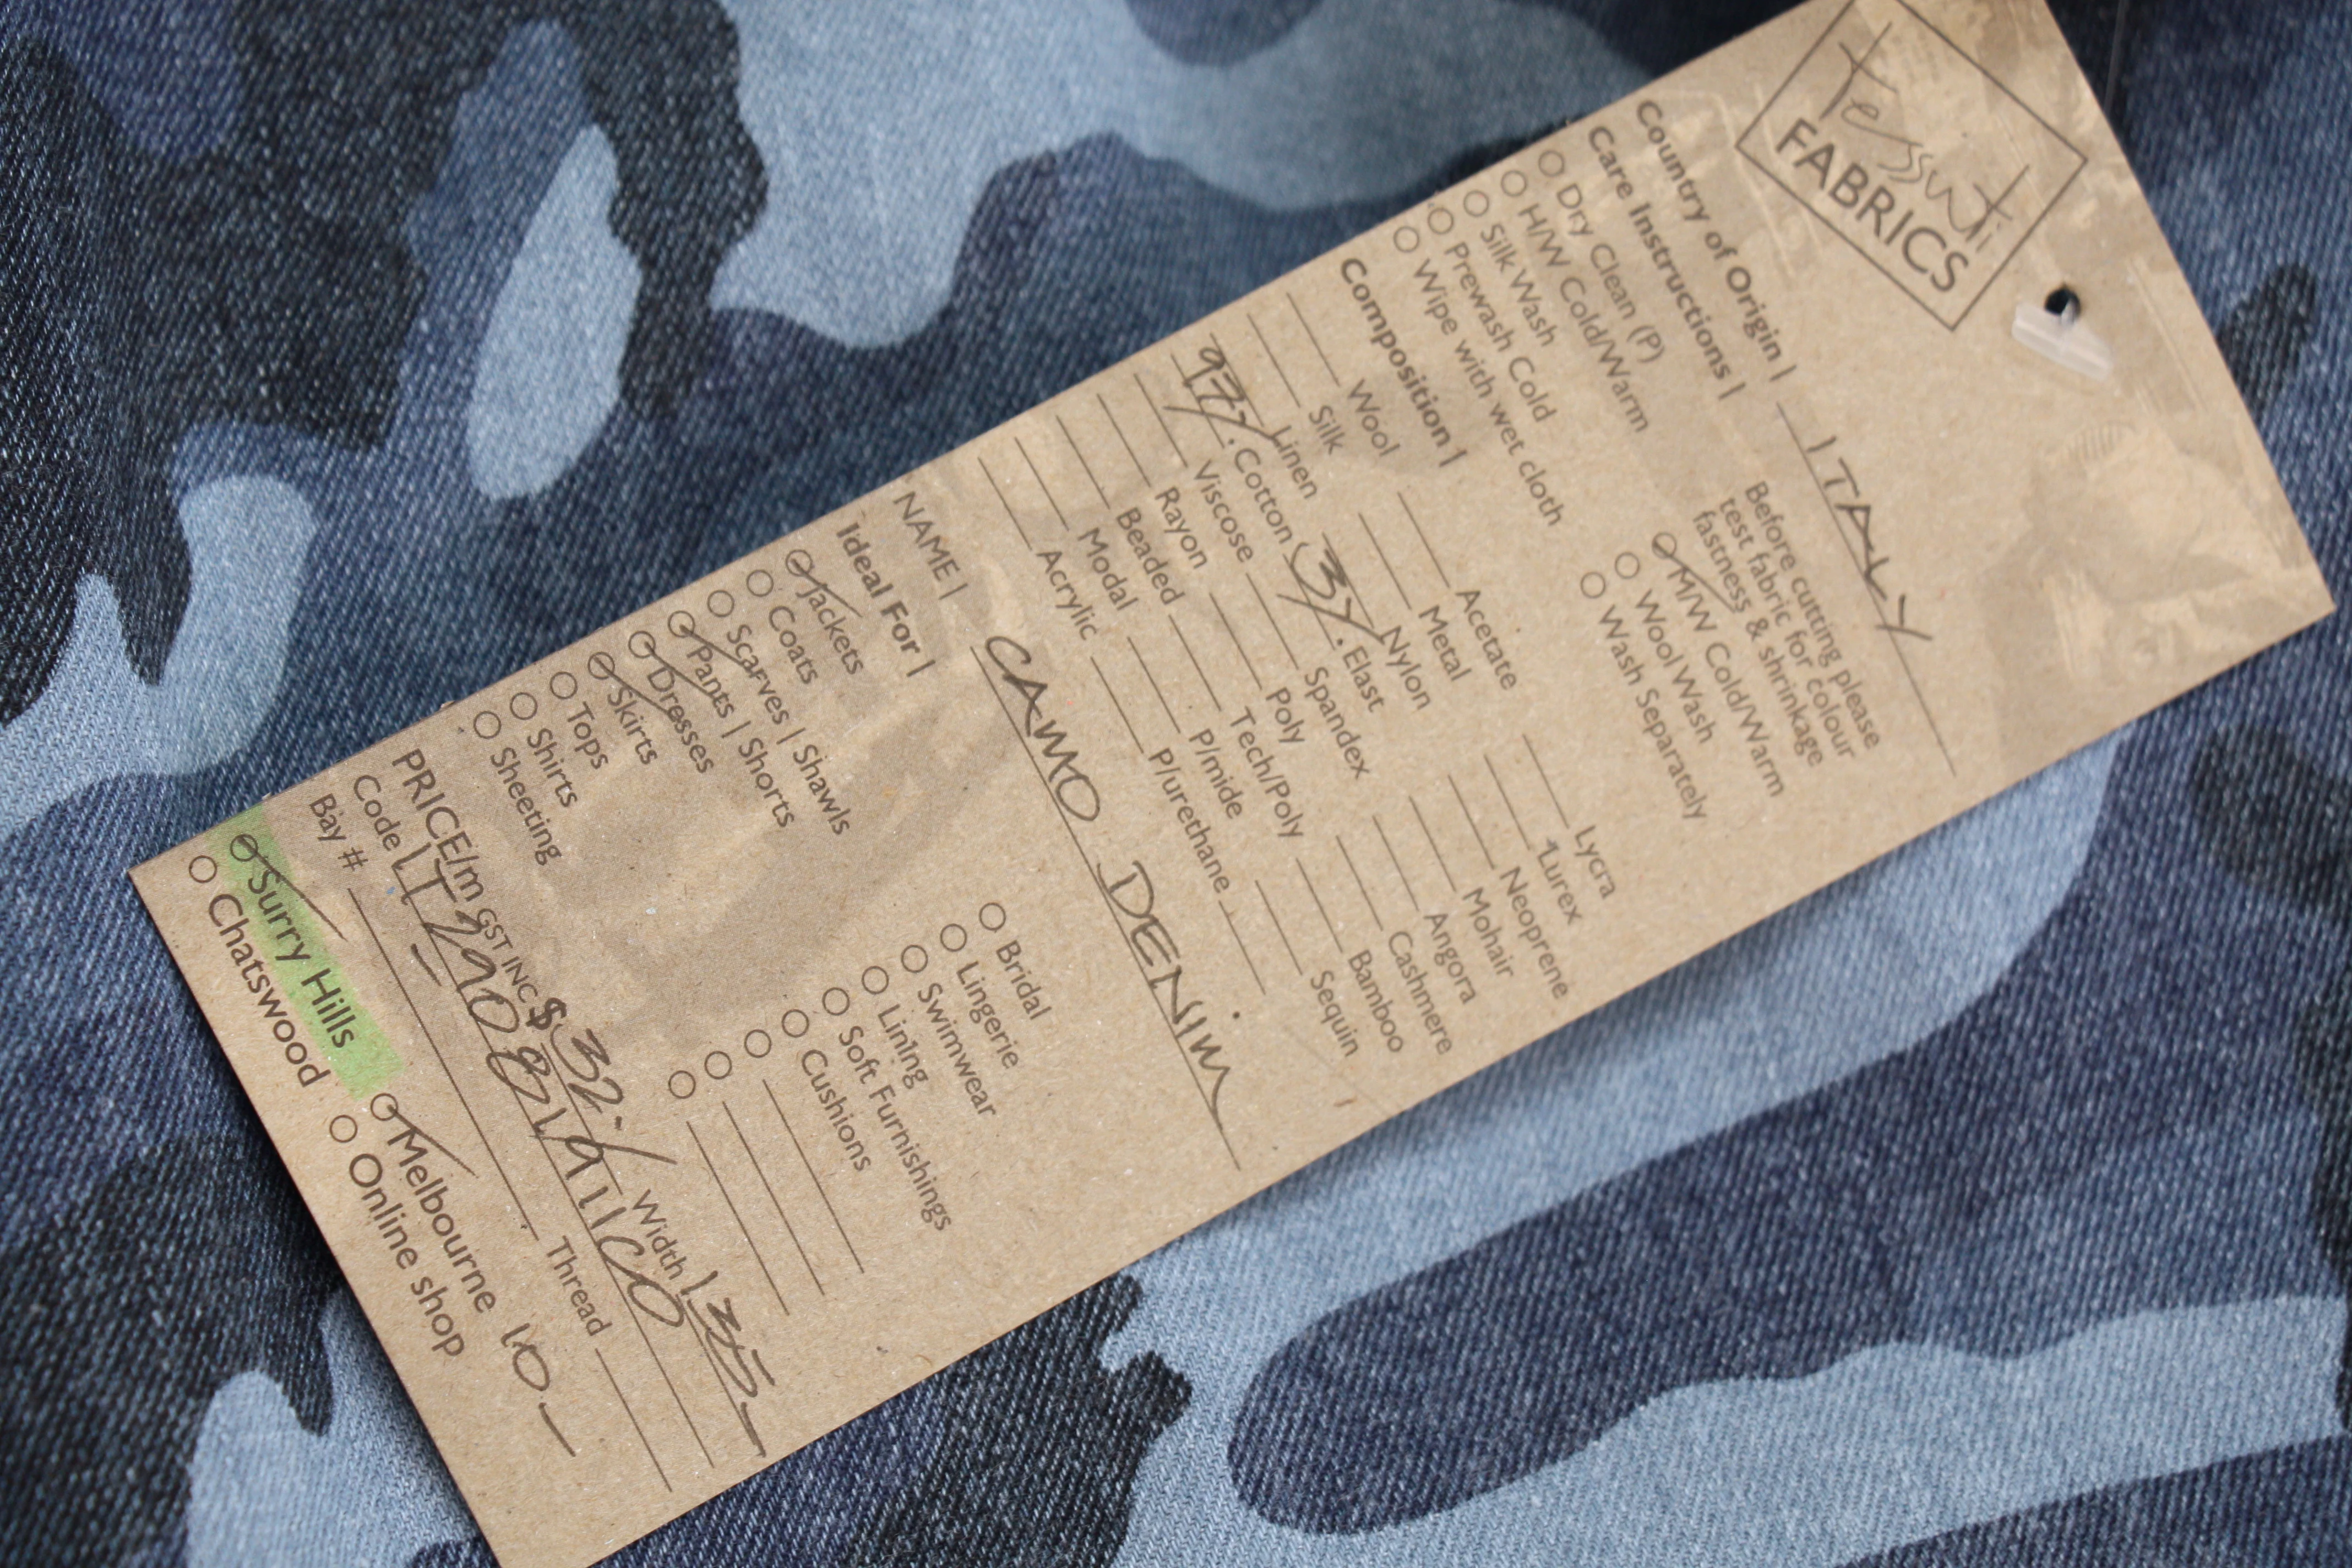 tessuti
FABRICS
Country of Origin | ITALY
Care Instructions | Before cutting please
test fabric for colour
fastness & shrinkage
Dry Clean (P) M/W Cold/Warm
H/W Cold/Warm Wool Wash
Silk Wash Wash Separately
Prewash Cold
Wipe with wet cloth
Composition |
Wool Acetate Lycra
Silk Metal Lurex
Linen Nylon Neoprene
97% Cotton 3% Elast Mohair
Viscose Spandex Angora
Rayon Poly Cashmere
Beaded Tech/Poly Bamboo
Modal P/mide Sequin
Acrylic P/urethane
NAME | CAMO DENIM
Ideal For |
Jackets Bridal
Coats Lingerie
Scarves | Shawls Swimwear
Pants | Shorts Lining
Dresses Soft Furnishings
Skirts Cushions
Tops
Shirts
Sheeting
PRICE/m GST INC $32.- Width 135-
Code
Bay # Thread
Surry Hills Melbourne 10-
Chatswood Online shop